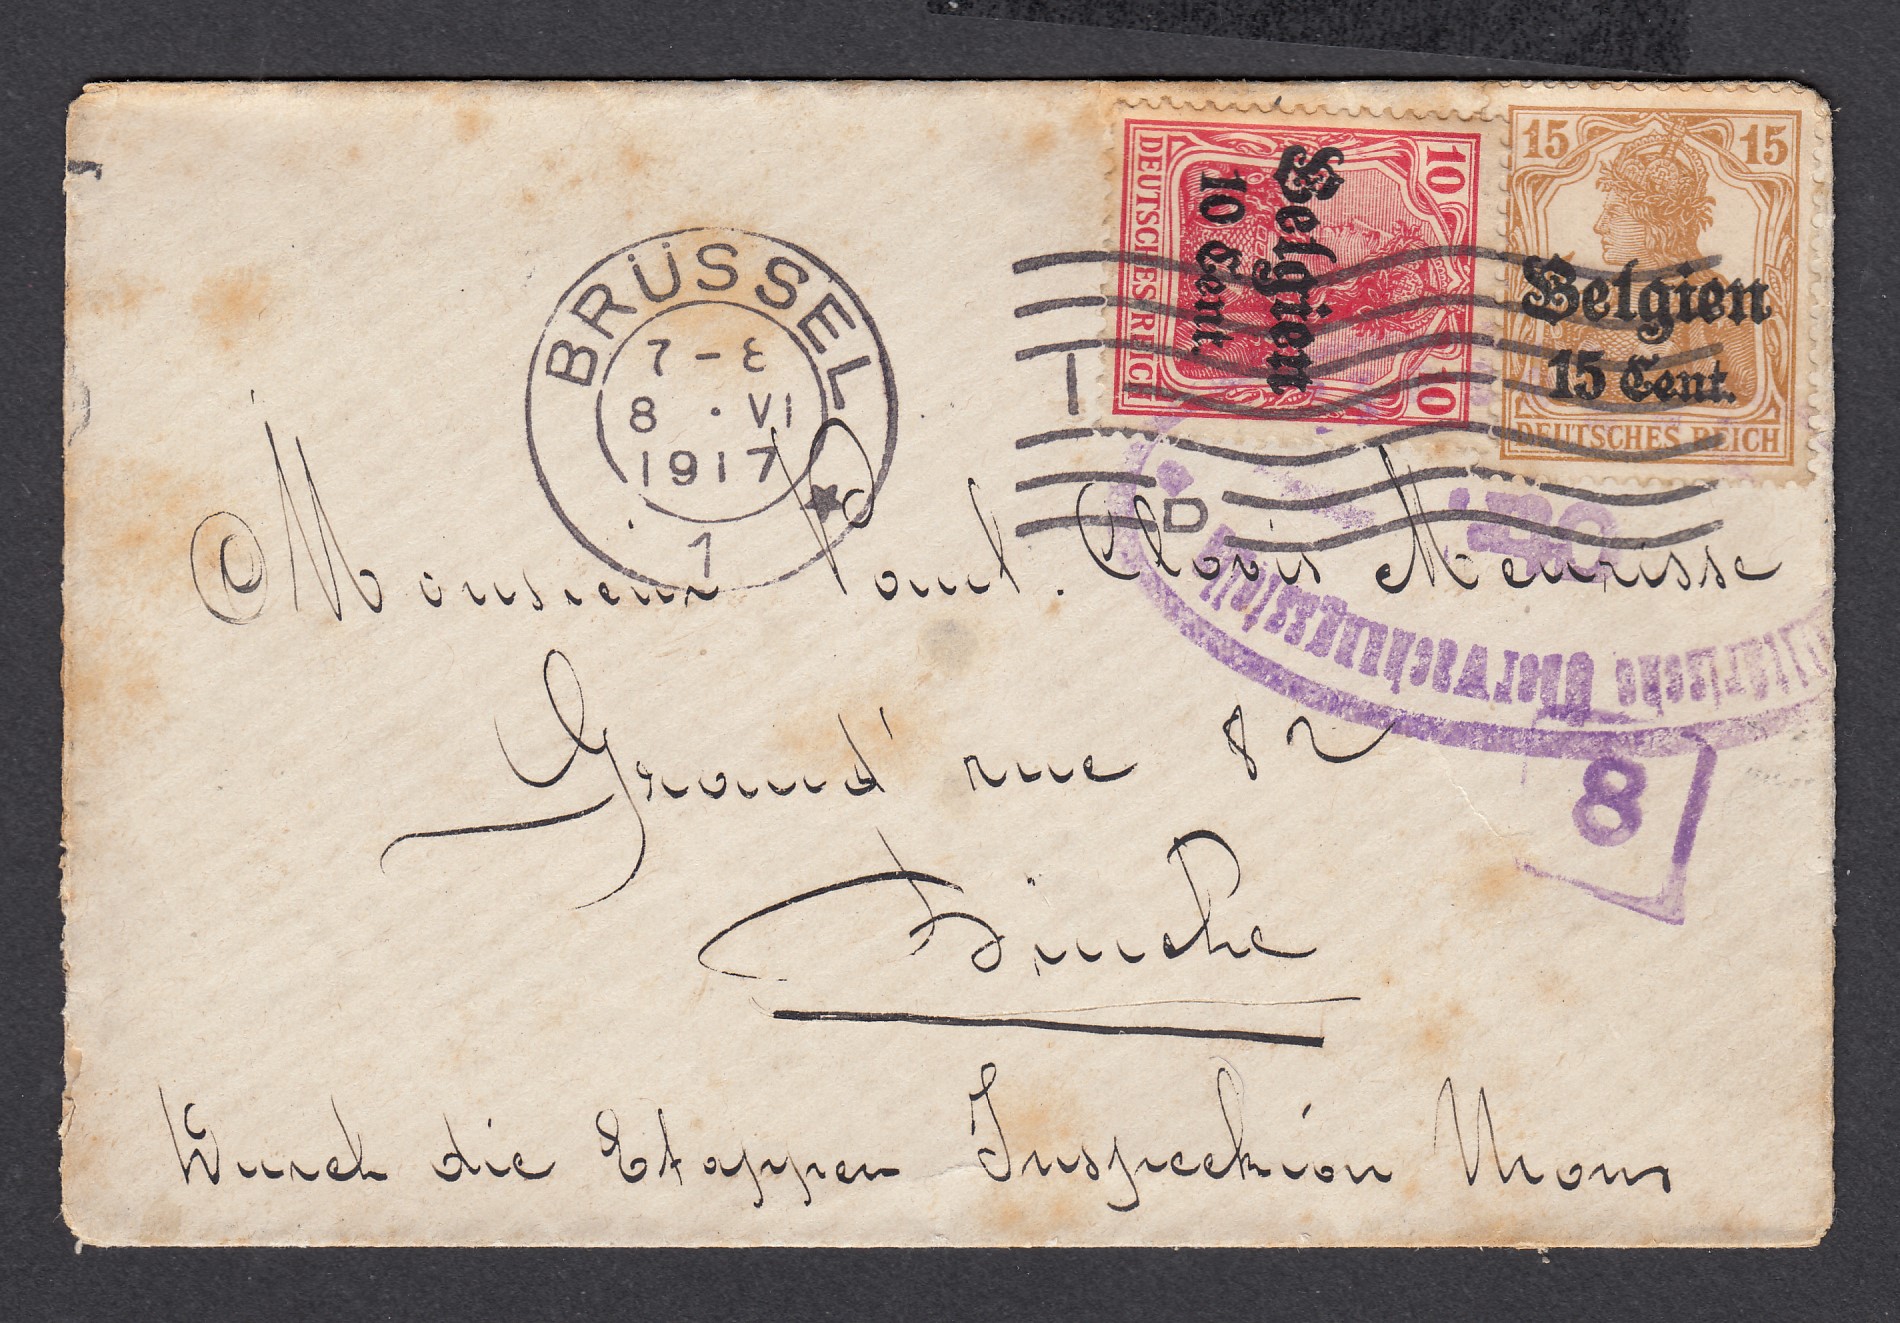 BRÜSSEL
7-8
8 . VI
1917
1
10
DEUTSCHES REICH
10
Belgien
10 Cent.
15 15
Belgien
15 Cent.
DEUTSCHES REICH
D
Überwachungsstelle
8
Monsieur Paul. Clovis Meurisse
Grand' rue 82
Binche
Durch die Etappen Inspecktion Mons